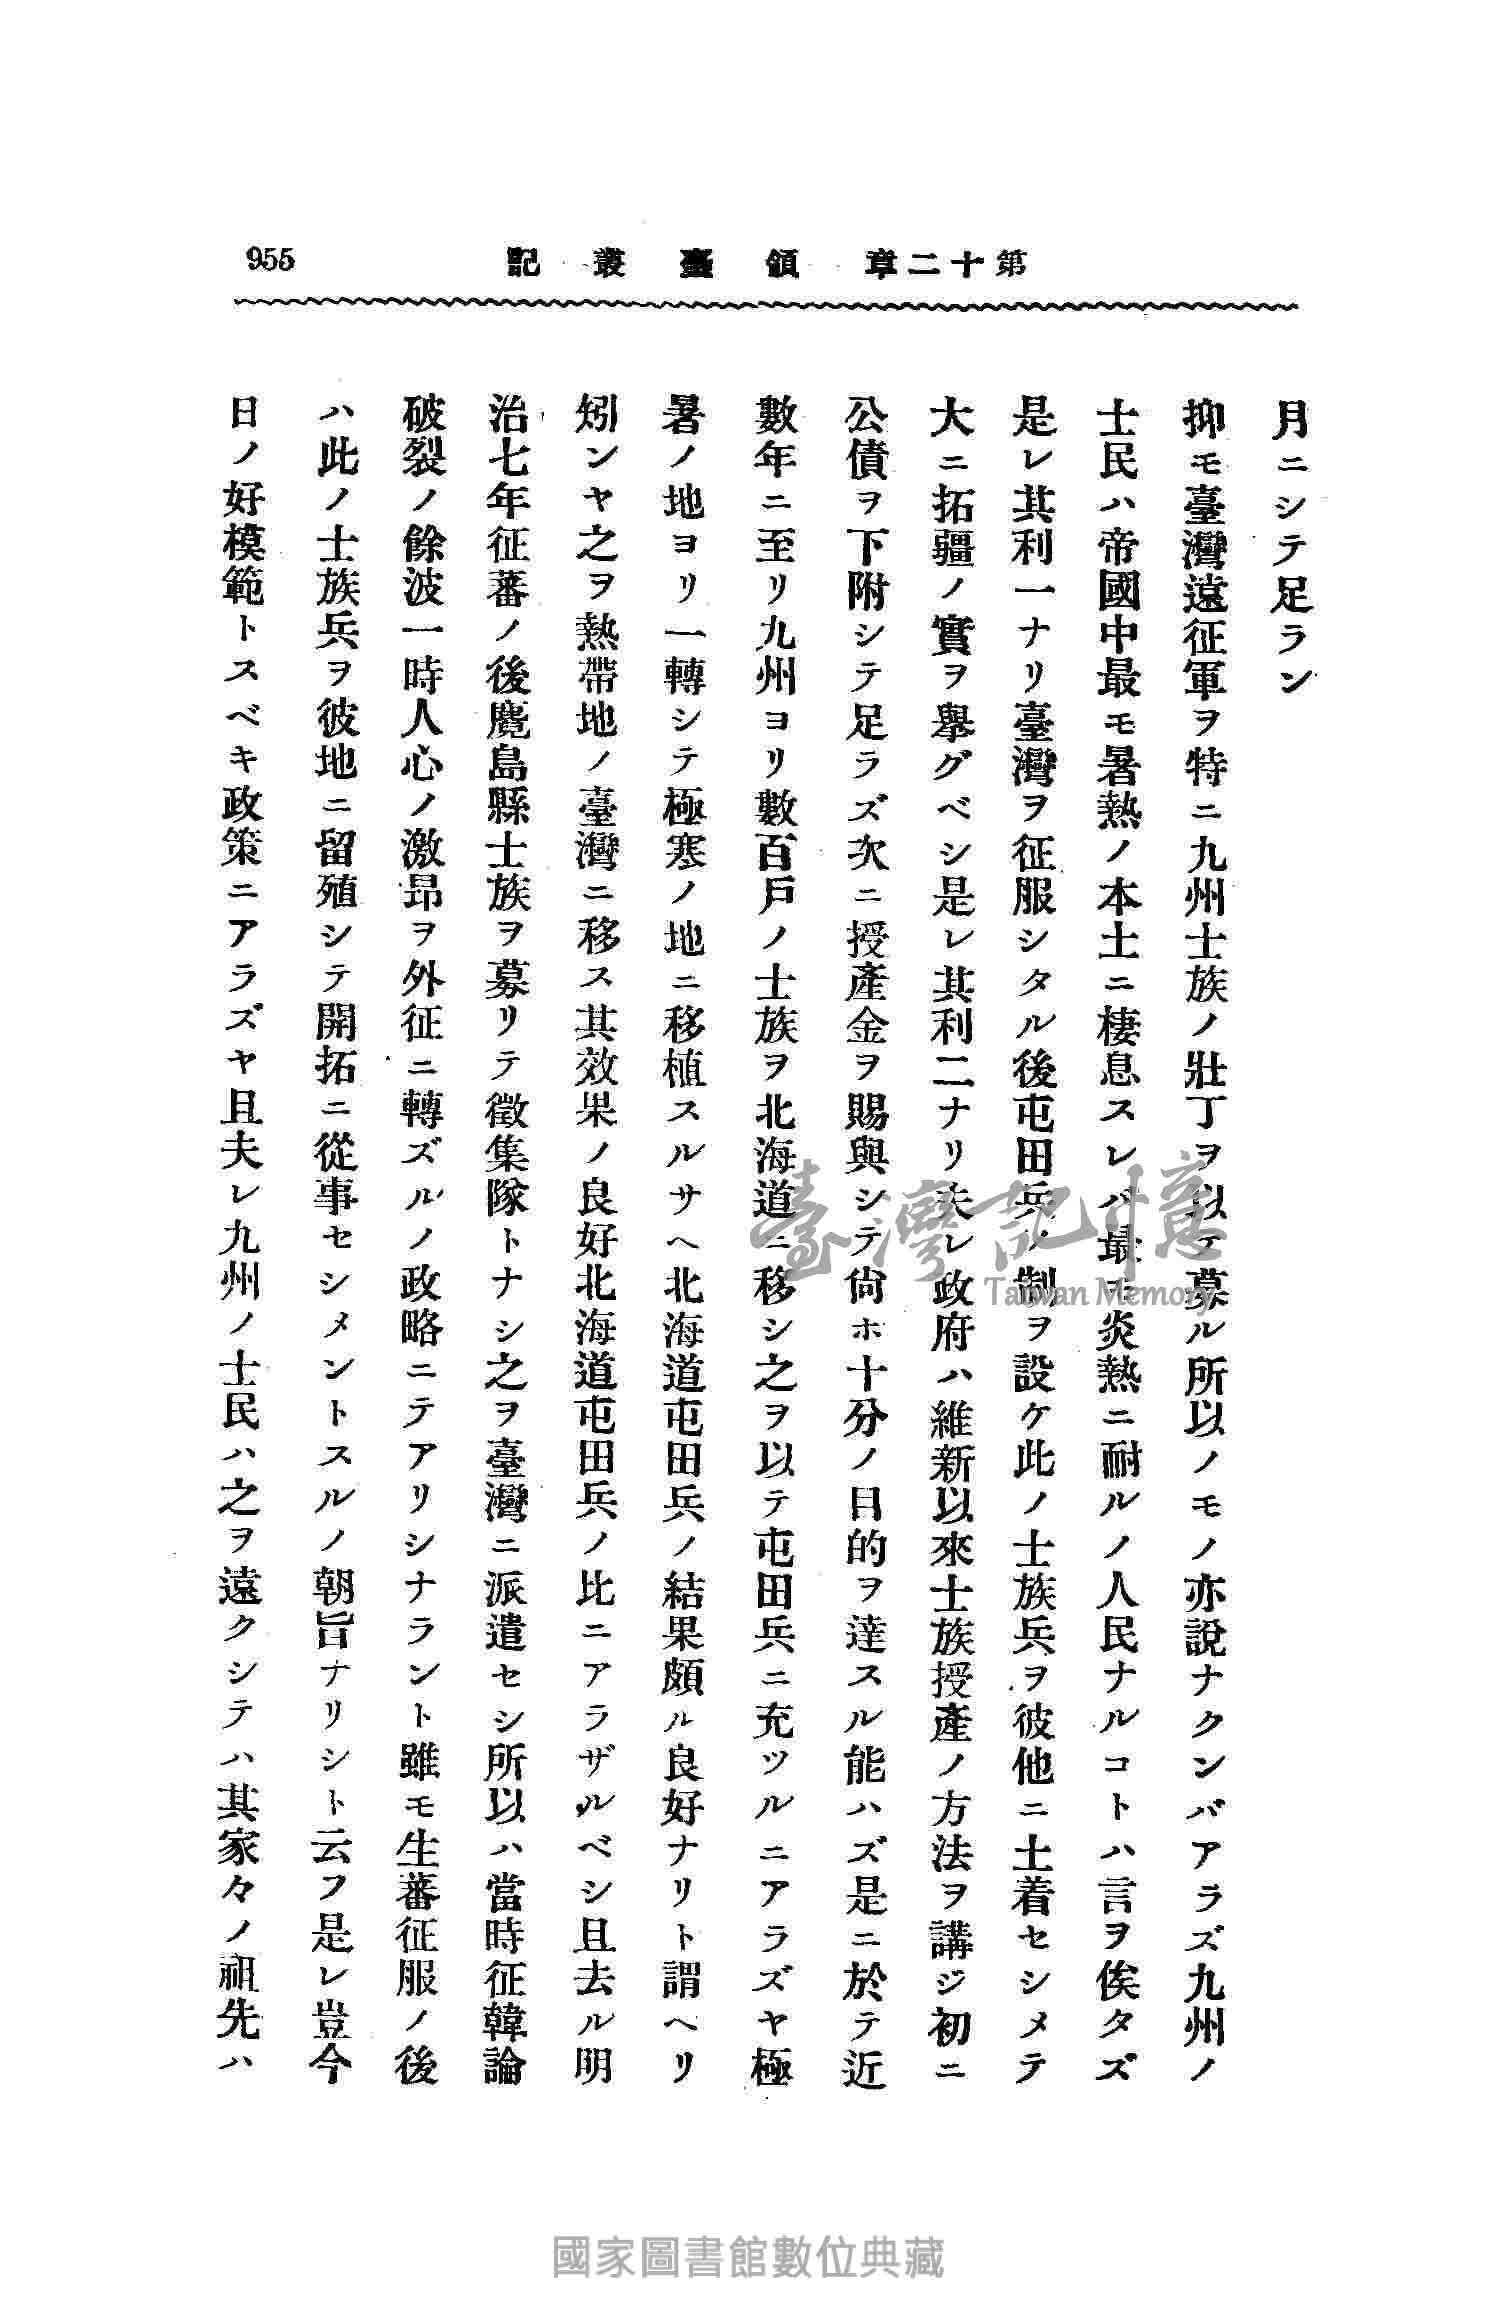 第十二章 領臺叢記
955
月ニシテ足ラン
抑モ臺灣遠征軍ヲ特ニ九州士族ノ壯丁ヲ以テ募ル所以ノモノ亦說ナクンバアラズ九州ノ
士民ハ帝國中最モ暑熱ノ本土ニ棲息スレバ最モ炎熱ニ耐ルノ人民ナルコトハ言ヲ俟タズ
是レ其利一ナリ臺灣ヲ征服シタル後屯田兵ノ制ヲ設ケ此ノ士族兵ヲ彼他ニ土着セシメテ
大ニ拓疆ノ實ヲ擧グベシ是レ其利二ナリ夫レ政府ハ維新以來士族授產ノ方法ヲ講ジ初ニ
公債ヲ下附シテ足ラズ次ニ授產金ヲ賜與シテ尙ホ十分ノ目的ヲ達スル能ハズ是ニ於テ近
數年ニ至リ九州ヨリ數百戶ノ士族ヲ北海道ニ移シ之ヲ以テ屯田兵ニ充ツルニアラズヤ極
暑ノ地ヨリ一轉シテ極寒ノ地ニ移植スルサヘ北海道屯田兵ノ結果頗ル良好ナリト謂ヘリ
矧ンヤ之ヲ熱帶地ノ臺灣ニ移ス其效果ノ良好北海道屯田兵ノ比ニアラザルベシ且去ル明
治七年征蕃ノ後麑島縣士族ヲ募リテ徵集隊トナシ之ヲ臺灣ニ派遣セシ所以ハ當時征韓論
破裂ノ餘波一時人心ノ激昂ヲ外征ニ轉ズルノ政略ニテアリシナラント雖モ生蕃征服ノ後
ハ此ノ士族兵ヲ彼地ニ留殖シテ開拓ニ從事セシメントスルノ朝旨ナリシト云フ是レ豈今
日ノ好模範トスベキ政策ニアラズヤ且夫レ九州ノ士民ハ之ヲ遠クシテハ其家々ノ祖先ハ
臺灣記憶
Taiwan Memory
國家圖書館數位典藏